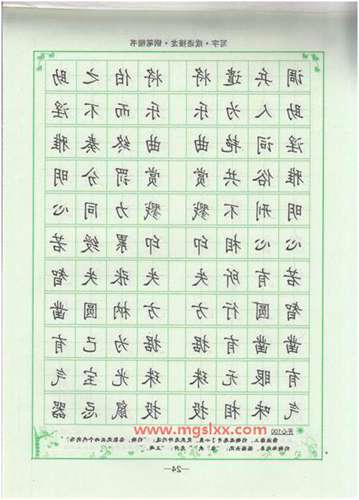 写字·成语接龙·钢笔楷书
调兵遣将 将伯之助
助人为乐 乐而不淫
淫词艳曲 曲终奏雅
雅俗共赏 赏罚分明
明刑不戮 戮力同心
心心相印 印累绶若
若有所失 失张失智
智圆行方 方枘圆凿
凿凿有据 据为己有
有眼无珠 珠光宝气
气味相投 投鼠忌器
开心100
www.mgslxx.com
—24—